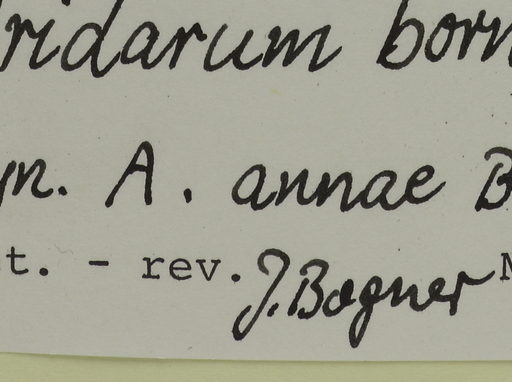 ridarum born
yn. A. annae B
t. - rev. J. Bogner M